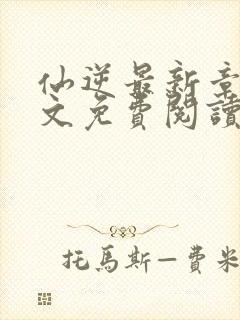 仙逆最新章
文免費閱讀
托馬斯—費米